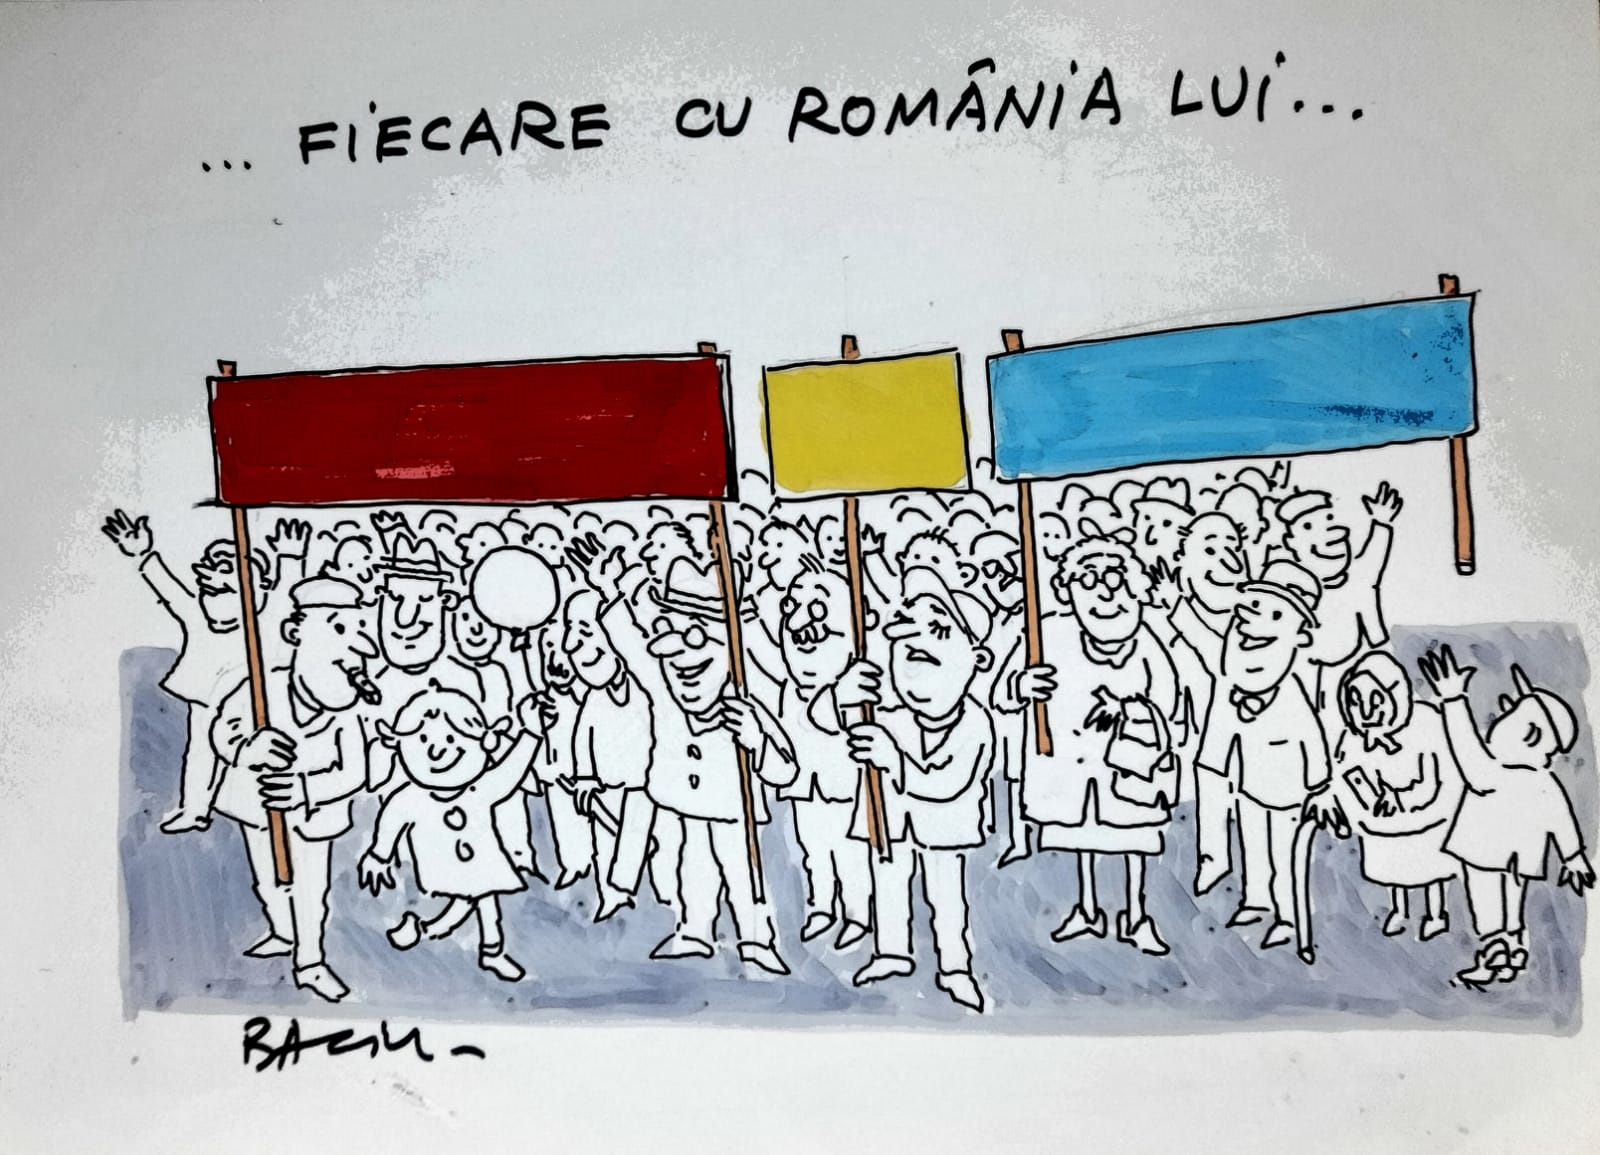 ... FIECARE CU ROMÂNIA LUI...